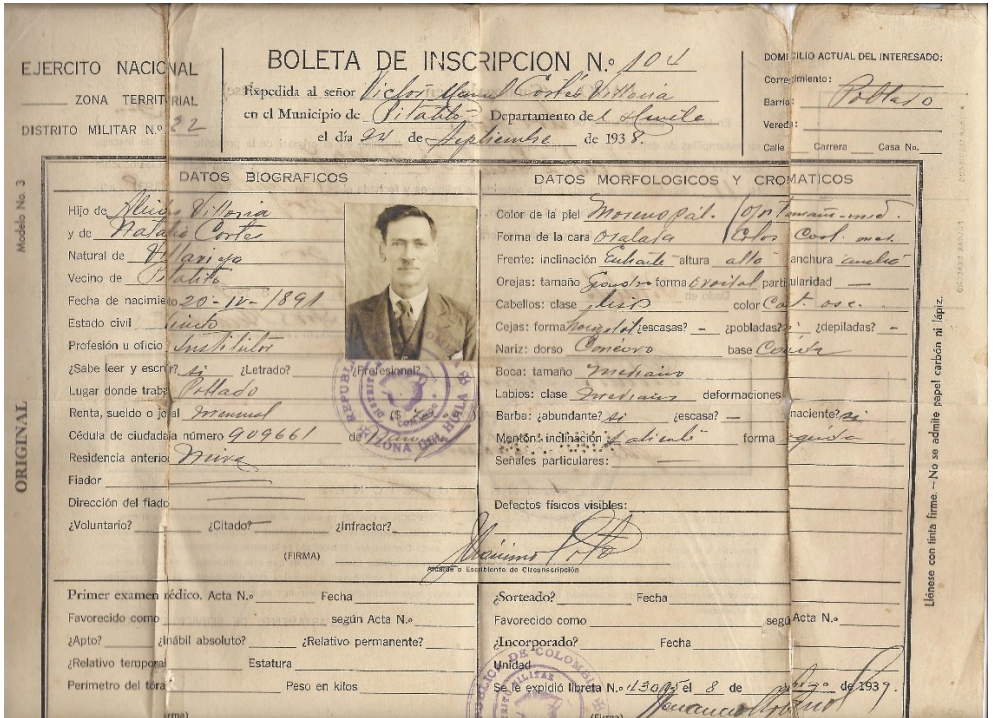 EJERCITO NACIONAL
ZONA TERRITORIAL
DISTRITO MILITAR N.º 22
BOLETA DE INSCRIPCION N.º 104
Expedida al señor Victor Manuel Cortés Vittoria
en el Municipio de Pitalito Departamento del Huila
el día 24 de Septiembre de 1938.
DOMICILIO ACTUAL DEL INTERESADO:
Corregimiento:
Barrio: Poblado
Vereda:
Calle Carrera Casa No.
Modelo No. 3
ORIGINAL
DATOS BIOGRAFICOS
Hijo de Vittoria
y de Natalio Cortes
Natural de Villavieja
Vecino de Pitalito
Fecha de nacimiento 20-IV-1891
Estado civil
Profesión u oficio Institutor
¿Sabe leer y escribir? si ¿Letrado? ¿Profesional?
Lugar donde trabaja Poblado
Renta, sueldo o jornal mensual ($
Cédula de ciudadanía número 909661 de
Residencia anterior Neiva
Fiador
Dirección del fiador
¿Voluntario? ¿Citado? ¿Infractor?
(FIRMA)
Alcalde o Escribiente de Circunscripción
REPUBLICA
DISTRITO
COMANDO
ZONA DEL HUILA
DATOS MORFOLOGICOS Y CROMATICOS
Color de la piel Moreno pál. Ojos tamaño-med.
Forma de la cara Color Cast.
Frente: inclinación altura alta anchura
Orejas: tamaño Grande forma particularidad —
Cabellos: clase liso color Cast. osc.
Cejas: forma ¿escasas? — ¿pobladas? si ¿depiladas? —
Nariz: dorso base
Boca: tamaño Mediano
Labios: clase Medianos deformaciones
Barba: ¿abundante? si ¿escasa? — naciente? si
Mentón: inclinación Saliente forma
Señales particulares: —
Defectos físicos visibles:
Llénese con tinta firme. — No se admite papel carbón ni lápiz.
Primer examen médico. Acta N.º Fecha
Favorecido como según Acta N.º
¿Apto? ¿Inábil absoluto? ¿Relativo permanente?
¿Relativo temporal Estatura
Perímetro del tórax Peso en kilos
¿Sorteado? Fecha
Favorecido como según Acta N.º
¿Incorporado? Fecha
Unidad
Se le expidió libreta N.º el 8 de de 1939.
REPUBLICA DE COLOMBIA
MILITAR
(Firma)